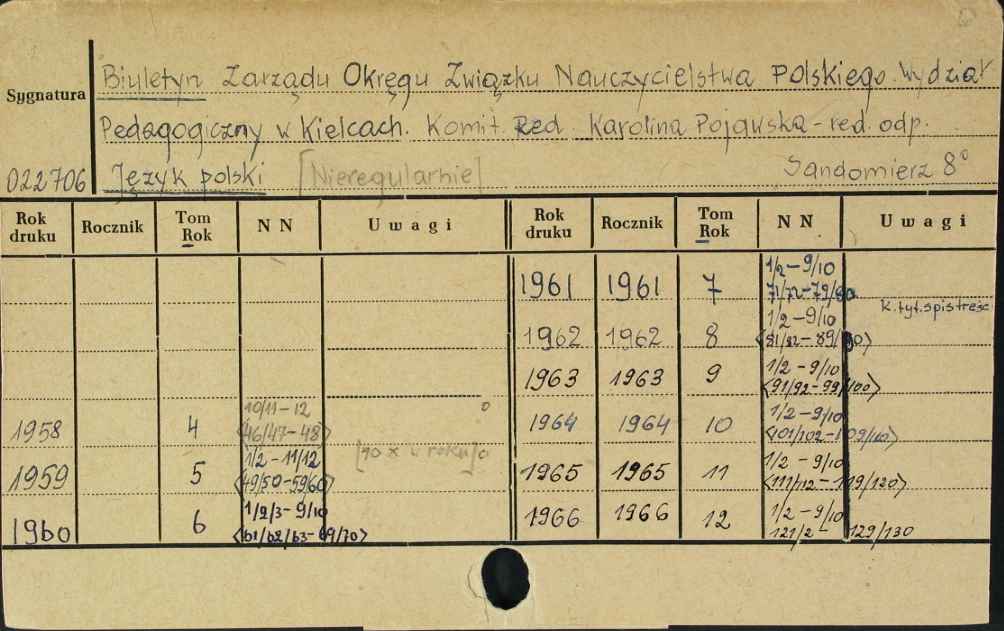 Biuletyn Zarządu Okręgu Związku Nauczycielstwa Polskiego. Wydział
Sygnatura
Pedagogiczny w Kielcach. Komit. Red. Karolina Pojawska - red. odp.
022706 Język polski [Nieregularnie] Sandomierz 8°
Rok druku Rocznik Tom Rok NN Uwagi Rok druku Rocznik Tom Rok NN Uwagi
1961 1961 7 1/2-9/10
71/72-79/80
k.tyt. spis treśc
1962 1962 8 1/2-9/10
<81/82-89/90>
1963 1963 9 1/2-9/10
<91/92-99/100>
1958 4 10/11-12
<46/47-48>
1964 1964 10 1/2-9/10
<101/102-109/110>
1959 5 1/2-11/12
<49/50-59/60> [10 x w roku]
1965 1965 11 1/2-9/10
<111/112-119/120>
1960 6 1/2/3-9/10
<61/62/63-69/70>
1966 1966 12 1/2-9/10
121/2-129/130